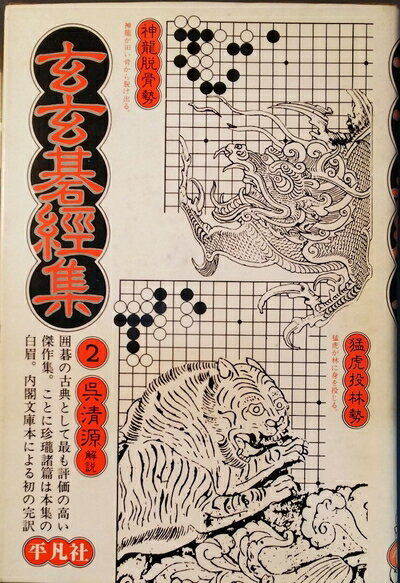 玄玄碁經集
2
呉清源
解説
囲碁の古典として最も評価の高い
傑作集。ことに珍瓏諸篇は本集の
白眉。内閣文庫本による初の完訳
平凡社
神龍脱骨勢
神龍が旧い骨から脱け出る。
猛虎投林勢
猛虎が林に身を投じる。